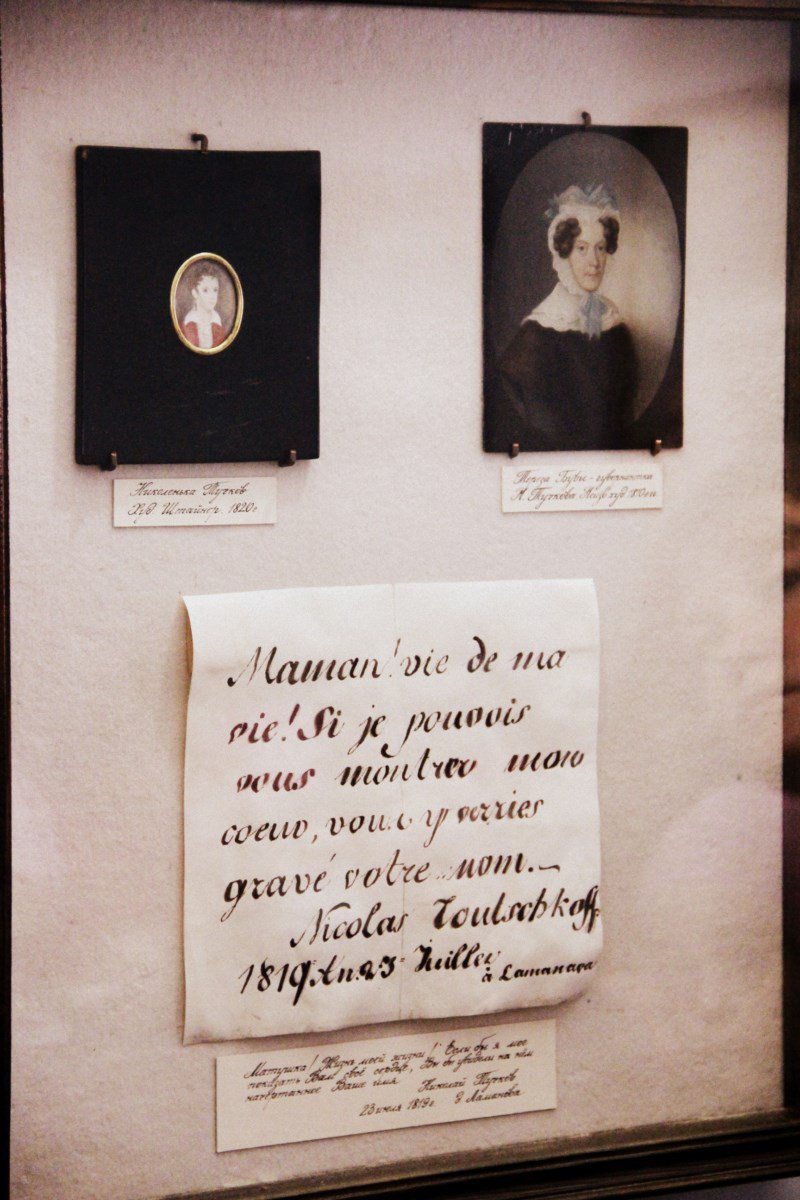 Николенька Тучков
Худ. Штайнер. 1820г.
Тереза Буви - гувернантка
М. Тучкова худ. 1810-е гг
Maman! vie de ma
vie! Si je pouvois
vous montrer mon
coeur, vous y verries
gravé votre nom.
Nicolas Toutschkoff
1819 An. 23 Juillet
à Lamanava
Матушка! Жизнь моей жизни! Если бы я мог
показать Вам своё сердце, Вы бы увидели на нём
начертанное Ваше имя
Николай Тучков
23 июля 1819г.